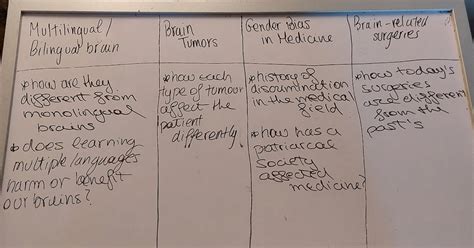 Multilingual/
Bilingual brain
• how are they
different from
monolingual
brains
• does learning
multiple languages
harm or benefit
our brains?
Brain
Tumors
• how each
type of tumour
affect the
patient
differently
Gender Bias
in Medicine
• history of
discrimination
in the medical
field
• how has a
patriarcal
society
affected
medicine?
Brain-related
surgeries
• how today's
surgeries
are different
from the
past's